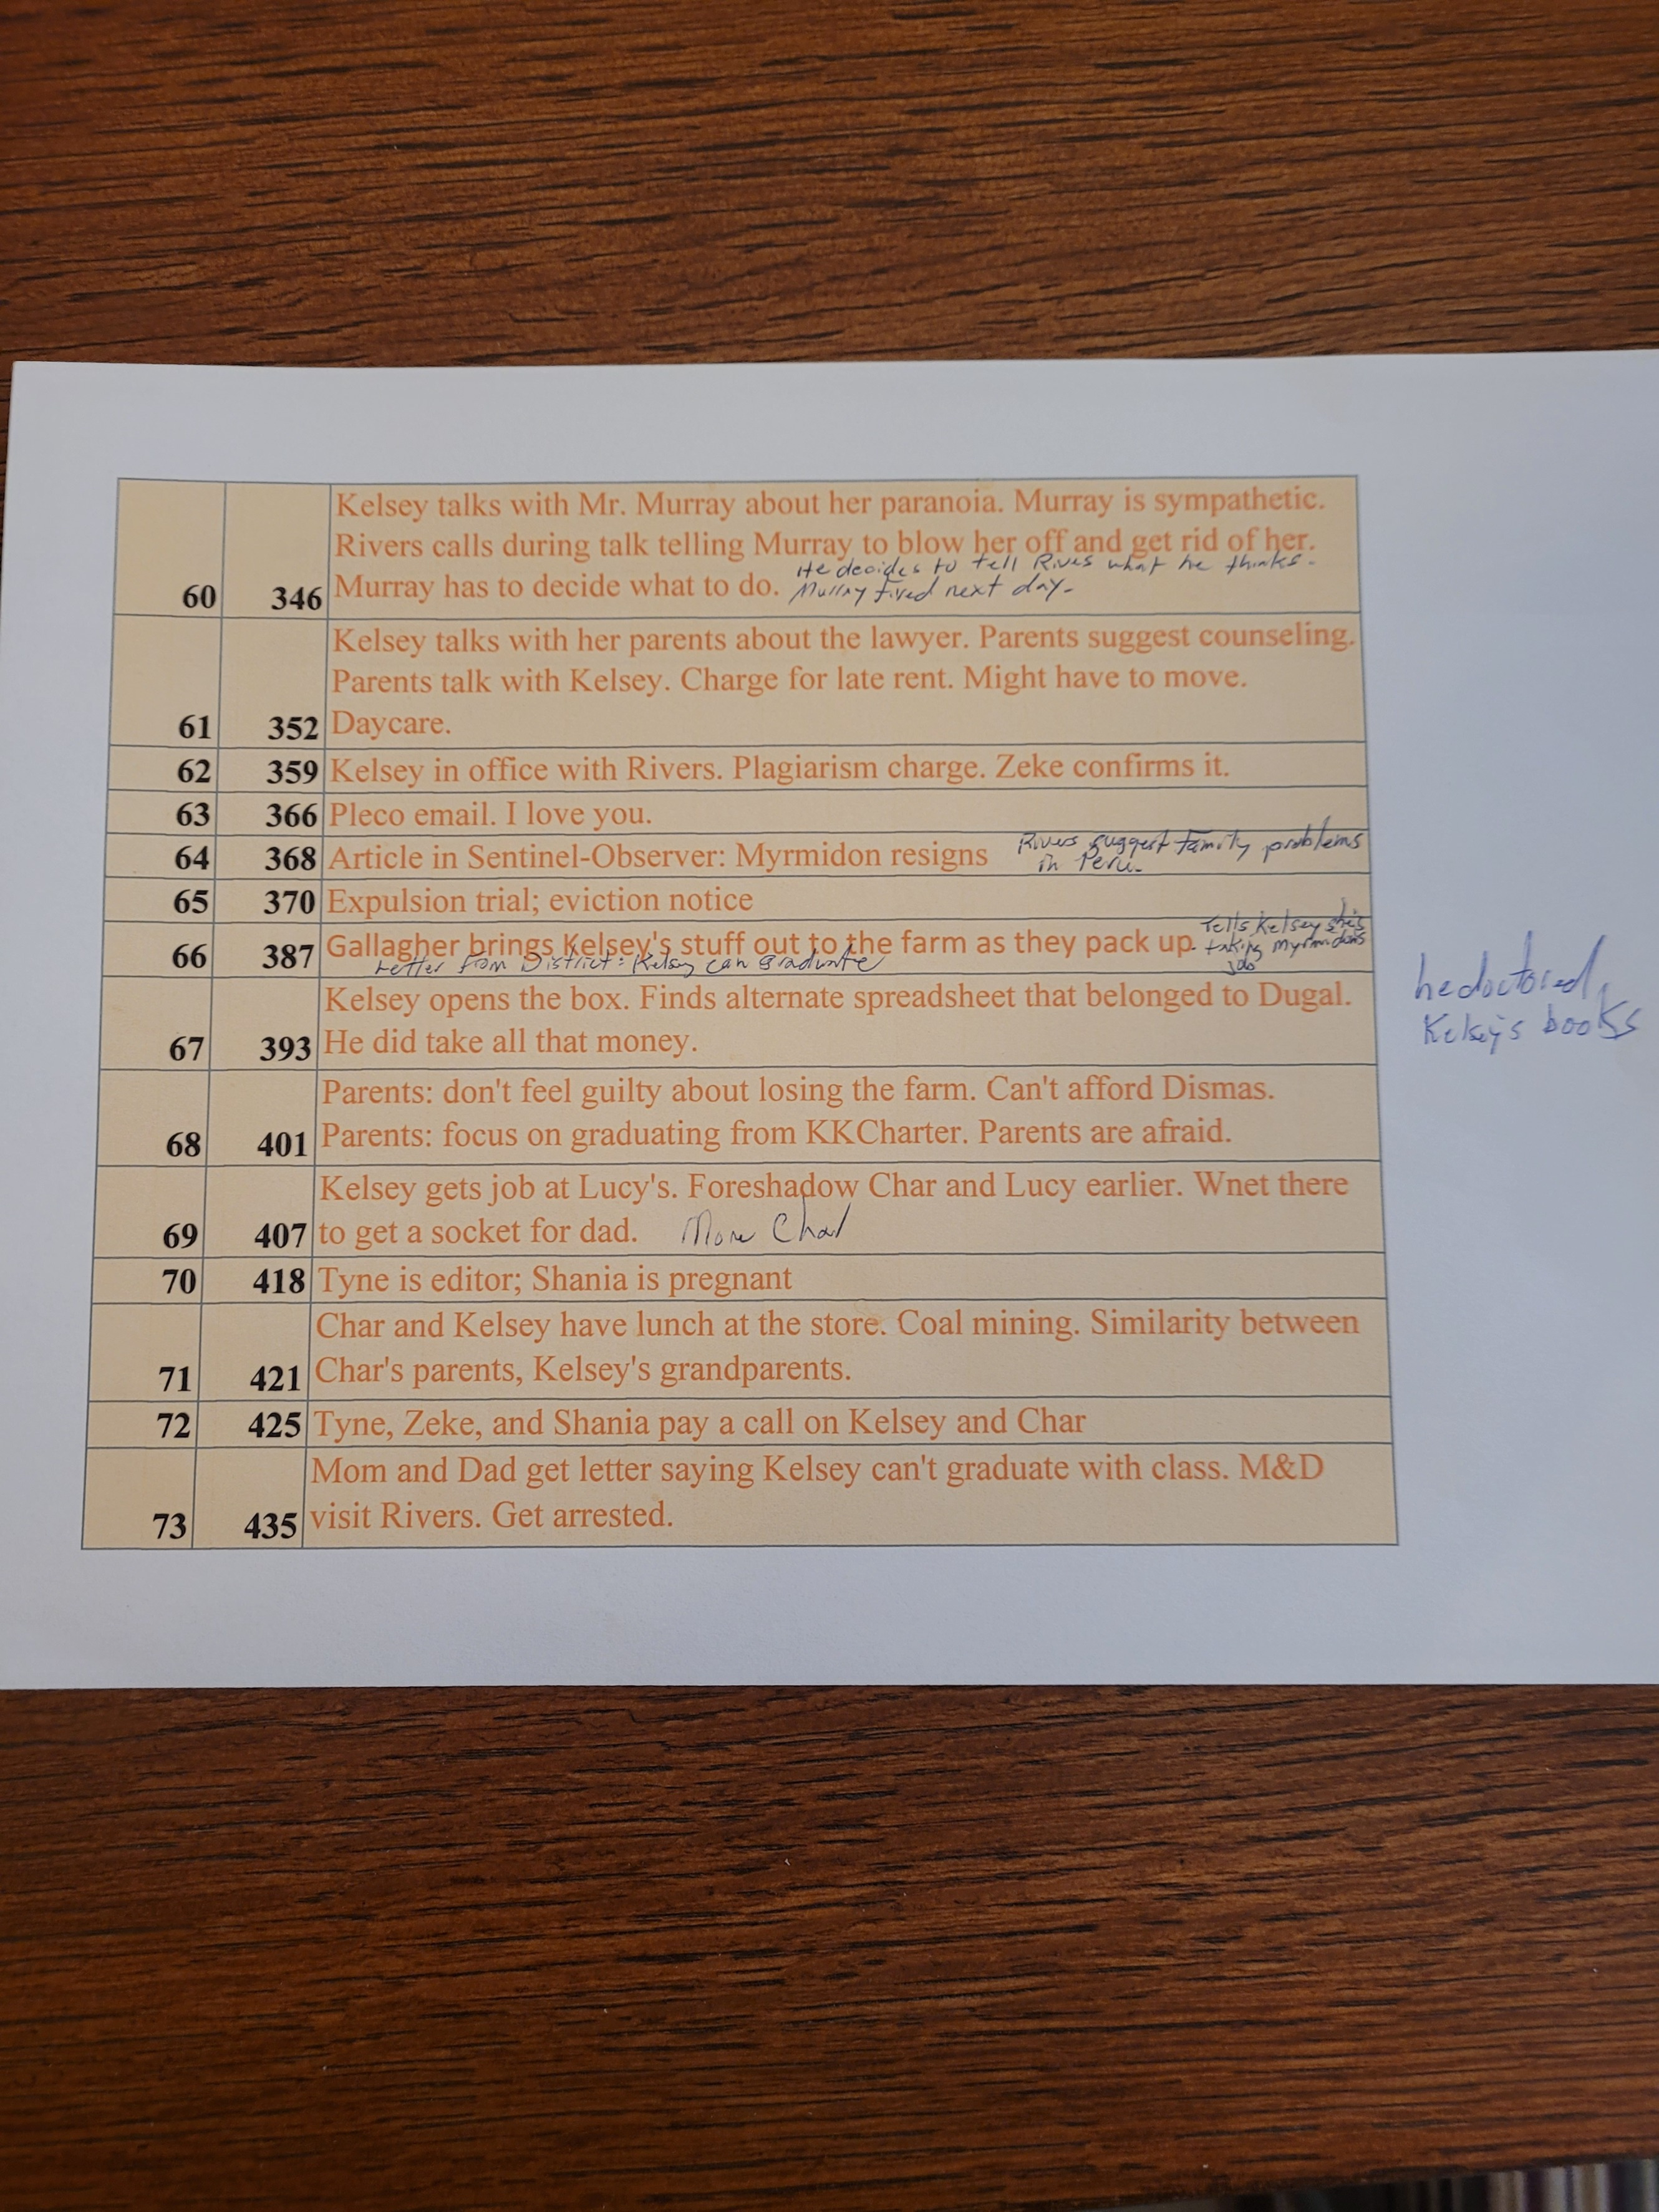 Kelsey talks with Mr. Murray about her paranoia. Murray is sympathetic.
Rivers calls during talk telling Murray to blow her off and get rid of her.
He decides to tell Rivers what he thinks.
60 346 Murray has to decide what to do. Murray fired next day.
Kelsey talks with her parents about the lawyer. Parents suggest counseling.
Parents talk with Kelsey. Charge for late rent. Might have to move.
61 352 Daycare.
62 359 Kelsey in office with Rivers. Plagiarism charge. Zeke confirms it.
63 366 Pleco email. I love you.
64 368 Article in Sentinel-Observer: Myrmidon resigns Rivers suggest family problems
in Peru.
65 370 Expulsion trial; eviction notice
66 387 Gallagher brings Kelsey's stuff out to the farm as they pack up. Tells Kelsey she's
taking Myrmidon's
job
Letter from District: Kelsey can graduate
Kelsey opens the box. Finds alternate spreadsheet that belonged to Dugal.
67 393 He did take all that money.
he doctored
Kelsey's books
Parents: don't feel guilty about losing the farm. Can't afford Dismas.
68 401 Parents: focus on graduating from KKCharter. Parents are afraid.
Kelsey gets job at Lucy's. Foreshadow Char and Lucy earlier. Wnet there
69 407 to get a socket for dad. More Char
70 418 Tyne is editor; Shania is pregnant
Char and Kelsey have lunch at the store. Coal mining. Similarity between
71 421 Char's parents, Kelsey's grandparents.
72 425 Tyne, Zeke, and Shania pay a call on Kelsey and Char
Mom and Dad get letter saying Kelsey can't graduate with class. M&D
73 435 visit Rivers. Get arrested.